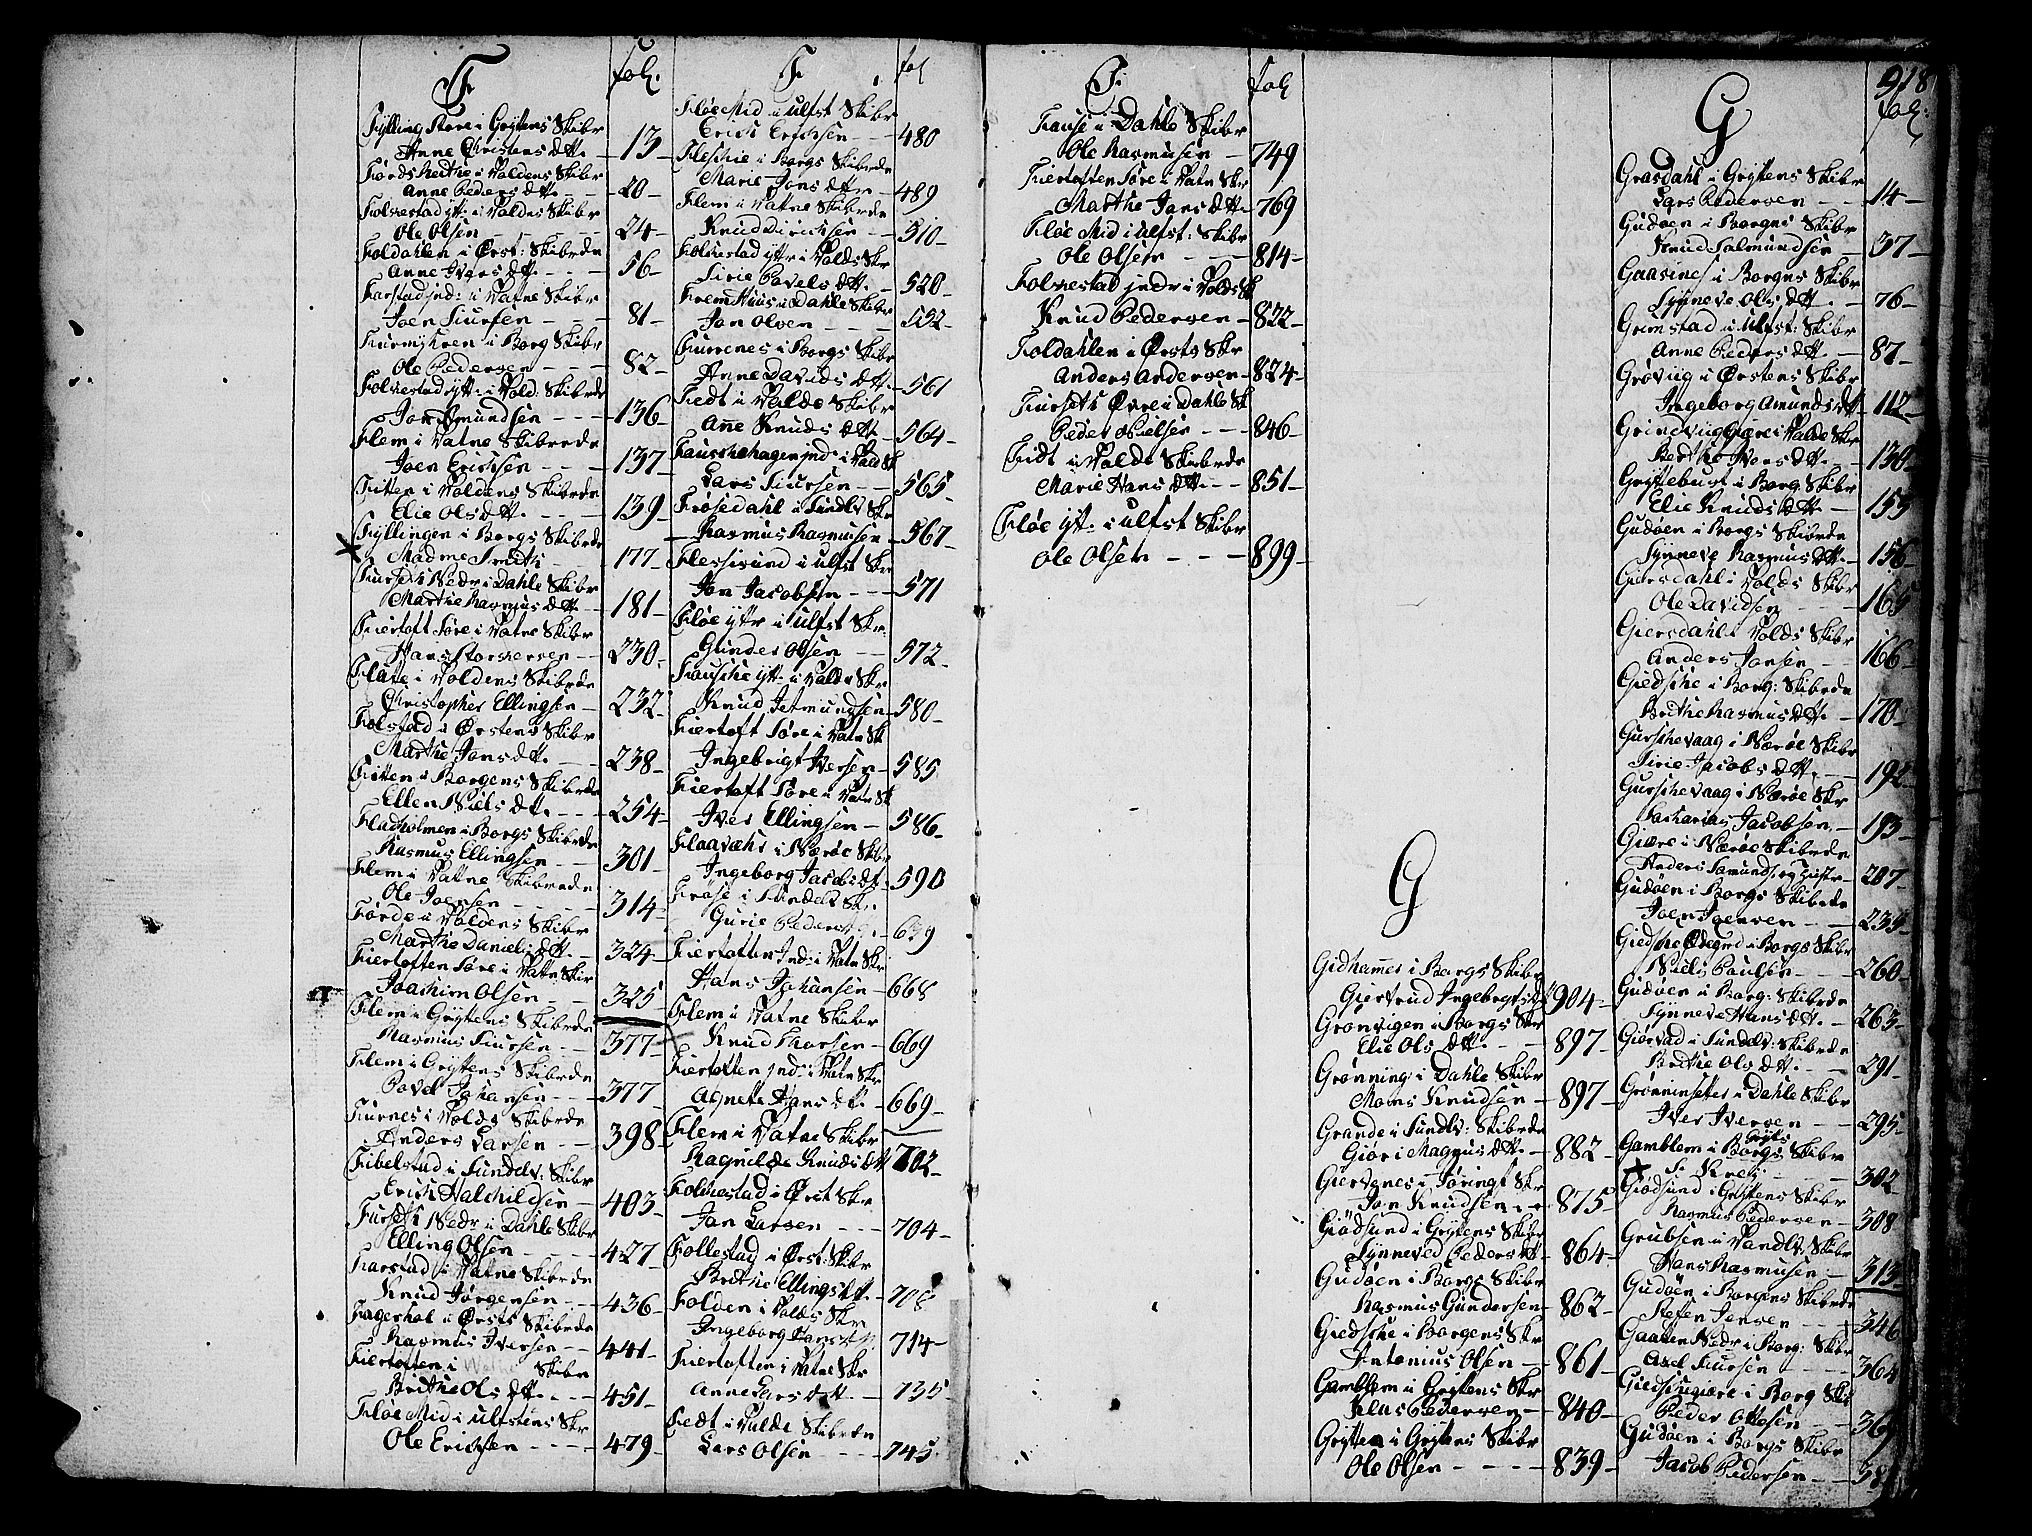 F
Fol:
Fylling Store i Grytens Skibr
Anne Christens dtt. 13
Fords Neethe i Voldens Skibr
Anne Peders dtt. 20
Folkestad ytt. i Voldes Skibr
Ole Olsen 24
Foldahlen i Ørst: Skibrede
Anne Ivers dtt. 56
Farstad ind: i Vatne Skibr
Joen Siursen 81
Furmyhren i Borg Skibr
Ole Pedersen 82
Folkestad ytt. i Vold: Skibrede
Jon Amundsen 136
Flem i Vatne Skibrede
Joen Erichsen 137
Fitten i Voldens Skibrede
Elie Ols dtt. 139
Fyllingen i Borgs Skibrede
Madme Smith 177
Fursett Nedr i Dahle Skibr
Marthe Rasmus dtt 181
Fiertoft Søre i Vatne Skibr
Hans Korsversen 230
Flate i Voldens Skibrede
Christopher Ellingsen 232
Folstad i Ørstens Skibr
Marthe Jons dtt. 238
Fitten i Borgens Skibrede
Ellen Niels dtt. 254
Fladholmen i Borgs Skibrede
Rasmus Ellingsen 301
Flem i Vatne Skibrede
Ole Joensen 314
Førde i Voldens Skibr
Marthe Daniels dtt. 324
Fiertoften Søre i Vatn Skir
Joachim Olsen 325
Flem i Grytens Skibrede
Rasmus Siursen 377
Flem i Grytens Skibrede
Povel Johansen 377
Furnes i Volds Skibrede
Anders Larsen 398
Fibelstad i Sundelv: Skibr
Erich Halchildsen 403
Fursett Nedr i Dahle Skibr
Elling Olsen 427
Farstad i Vatne Skibrede
Knud Jørgensen 436
Fagerhol i Ørsts Skibrede
Rasmus Iversen 441
Fiertoften i Skibr
Brithe Ols dtt. 451
Fløe Mid i Ulfstens Skr
Ole Erichsen 479
F
fol
Fløe Mid i Ulfst Skibr
Erich Erichsen 480
Fleschie i Borgs Skibrede
Marie Jons dtr 489
Flem i Vatne Skibrede
Knud Dirichsen 510
Folkestad ytr i Volds Skr
Sirie Povels dtt. 520
Frem Huus i Dahle Skibr
Jon Olsen 552
Furrenes i Borgs Skibr
Anne Davids dtt. 561
Fedt i Valde Skibr
Anne Knuds dtt. 564
Fauschehagen ind: i Vald Sk
Lars Siursen 565
Frøsedahl i Sundlv Skr
Rasmus Rasmusen 567
Flessisund i Ulfst Skr
Jon Jacobsen 571
Fløe ytr i Ulfst Skr.
Gunder Olsen 572
Fausche ytt. i Valde Skr
Knud Jetmundsen 580
Fiertoft Søre i Vatn Sk
Ingebrigt Iversen 585
Fiertoft Søre i Vatn Sk
Iver Ellingsen 586
Flaavæhr i Nærøe Skibr
Ingeborg Jacobs dt. 590
Frøse i Sundelv Skr.
Gurie Peders dt. 639
Fiertoften Ind: i Vatn Skr
Hans Johansen 668
Flem i Vatne Skibr
Knud Thorsen 669
Fiertoften ind: i Vatn Skr
Agnete Hans dtt. 669
Flem i Vatne Skibr
Ragnilde Knuds dtt 702
Folkestad i Ørst Skr
Jon Larsen 704
Follestad i Ørst: Skibr
Brithe Ellings dtt. 708
Folden i Volds Skr
Ingeborg Hans dtt 714
Fiertoften i Vatne Skr
Anne Lars dtt. 735
Fedt i Valde Skibrede
Lars Olsen 745
F:
Fol
Fause i Dahle Skibr
Ole Rasmusen 749
Fiertoften Søre i Vatn Skr
Marthe Jans dtt 769
Fløe Mid i Ulfst: Skibr
Ole Olsen 814
Folkestad indr i Volds Sk
Knud Pedersen 822
Foldahlen i Ørsts Skr
Anders Andersen 824
Fursets Øvre i Dahle Sk
Peder Nielsen 846
Fedt i Valde Skibrede
Marie Hans dtt. 851
Fløe ytt. i Ulfst Skibr
Ole Olsen 899
G
Gidhames i Borgs Skibr
Giertrud Ingebregts dtt 904
Gronvigen i Borgs Skr
Elie Ols dtt. 897
Grønning i Dahle Skibr
Mons Knudsen 897
Grande i Sundlv: Skibrede
Giøri Magnus dtt. 882
Giersnes i Jøringf Skr
Jon Knudsen 875
Giödsund i Grytens Skibr
Synneve Peders dt 864
Gudøen i Borgs Skibr
Rasmus Gundersen 862
Giedsche i Borgens Skr
Antonius Olsen 861
Gamblem i Grytens Skr
Klas Pedersen 840
Grytten i Grytens Skibr
Ole Olsen 839
918
Fol:
G
Grasdahl i Grytens Skibr
Lars Pedersen 14
Gudøen i Borgns Skibr
Knud Salmundsen 37
Gaasenes i Borgns Skibr
Synneve Ols dtt. 76
Grimstad i Ulfst: Skibr
Anne Peders dtt. 87
Grøvug i Ørstens Skibr
Ingeborg Amunds dtt 112
Grindvug Giære i Valde Skr
Berthe Ivers dtt. 130
Gryttebust i Borg Skibr
Elie Knuds dtt 155
Gudøen i Borgs Skibrede
Synneve Rasmus dtt. 156
Giersdahl i Volds Skibr
Ole Davidsen 165
Giersdahl i Volds Skibr
Anders Jonsen 166
Giedsche i Borg: Skibrede
Brithe Rasmus dtt. 170
Gurschevaag i Nærøe Skibr
Sirie Jacobs dtt. 192
Gurschevaag i Nærøe Skr
Sacharias Jacobsen 193
Giære i Nærøe Skibrede
Anders Samunds og Hustr 207
Gudøen i Borgs Skibrede
Joen Joensen 239
Giedsche Ødegrd i Borgs Skibr
Niels Poulsen 260
Gudøen i Borg: Skibrede
Synneve Hans dtt. 263
Giørstad i Sundelv: Skibrede
Brithe Ols dtt. 291
Grønninsetter i Dahle Skibr
Iver Iversen 295
Gamblem i Borgs Gryts Skibr
302
Giødsund i Grytens Skibr
Rasmus Pedersen 308
Grubsen i Vandlv: Skibr
Hans Rasmusen 313
Gudøen i Borgens Skibrede
Steffen Jensen 346
Gaaren Nedr i Borg: Skibr
Axel Siursen 364
Giedsingiære i Borg Skib
Peder Ottesen 369
Gudøen i Borgs Skibr
Jacob Pedersen